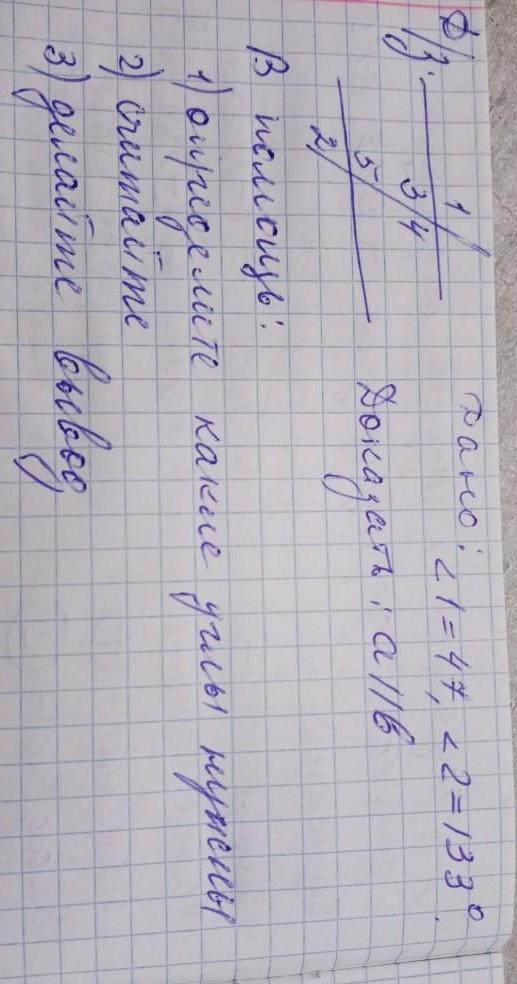 Д/з.
1
3 4
5
2
Дано: <1=47, <2=133°.
Доказать: a||b
В помощь:
1) определите какие углы нужны
2) считайте
3) делайте вывод